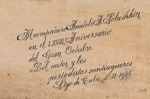 Al compañero Anatoli P. Golushkin
en el LXXI Aniversario
del Gran Octubre
De los
periodistas santiagueros
Stgo de Cuba 1988